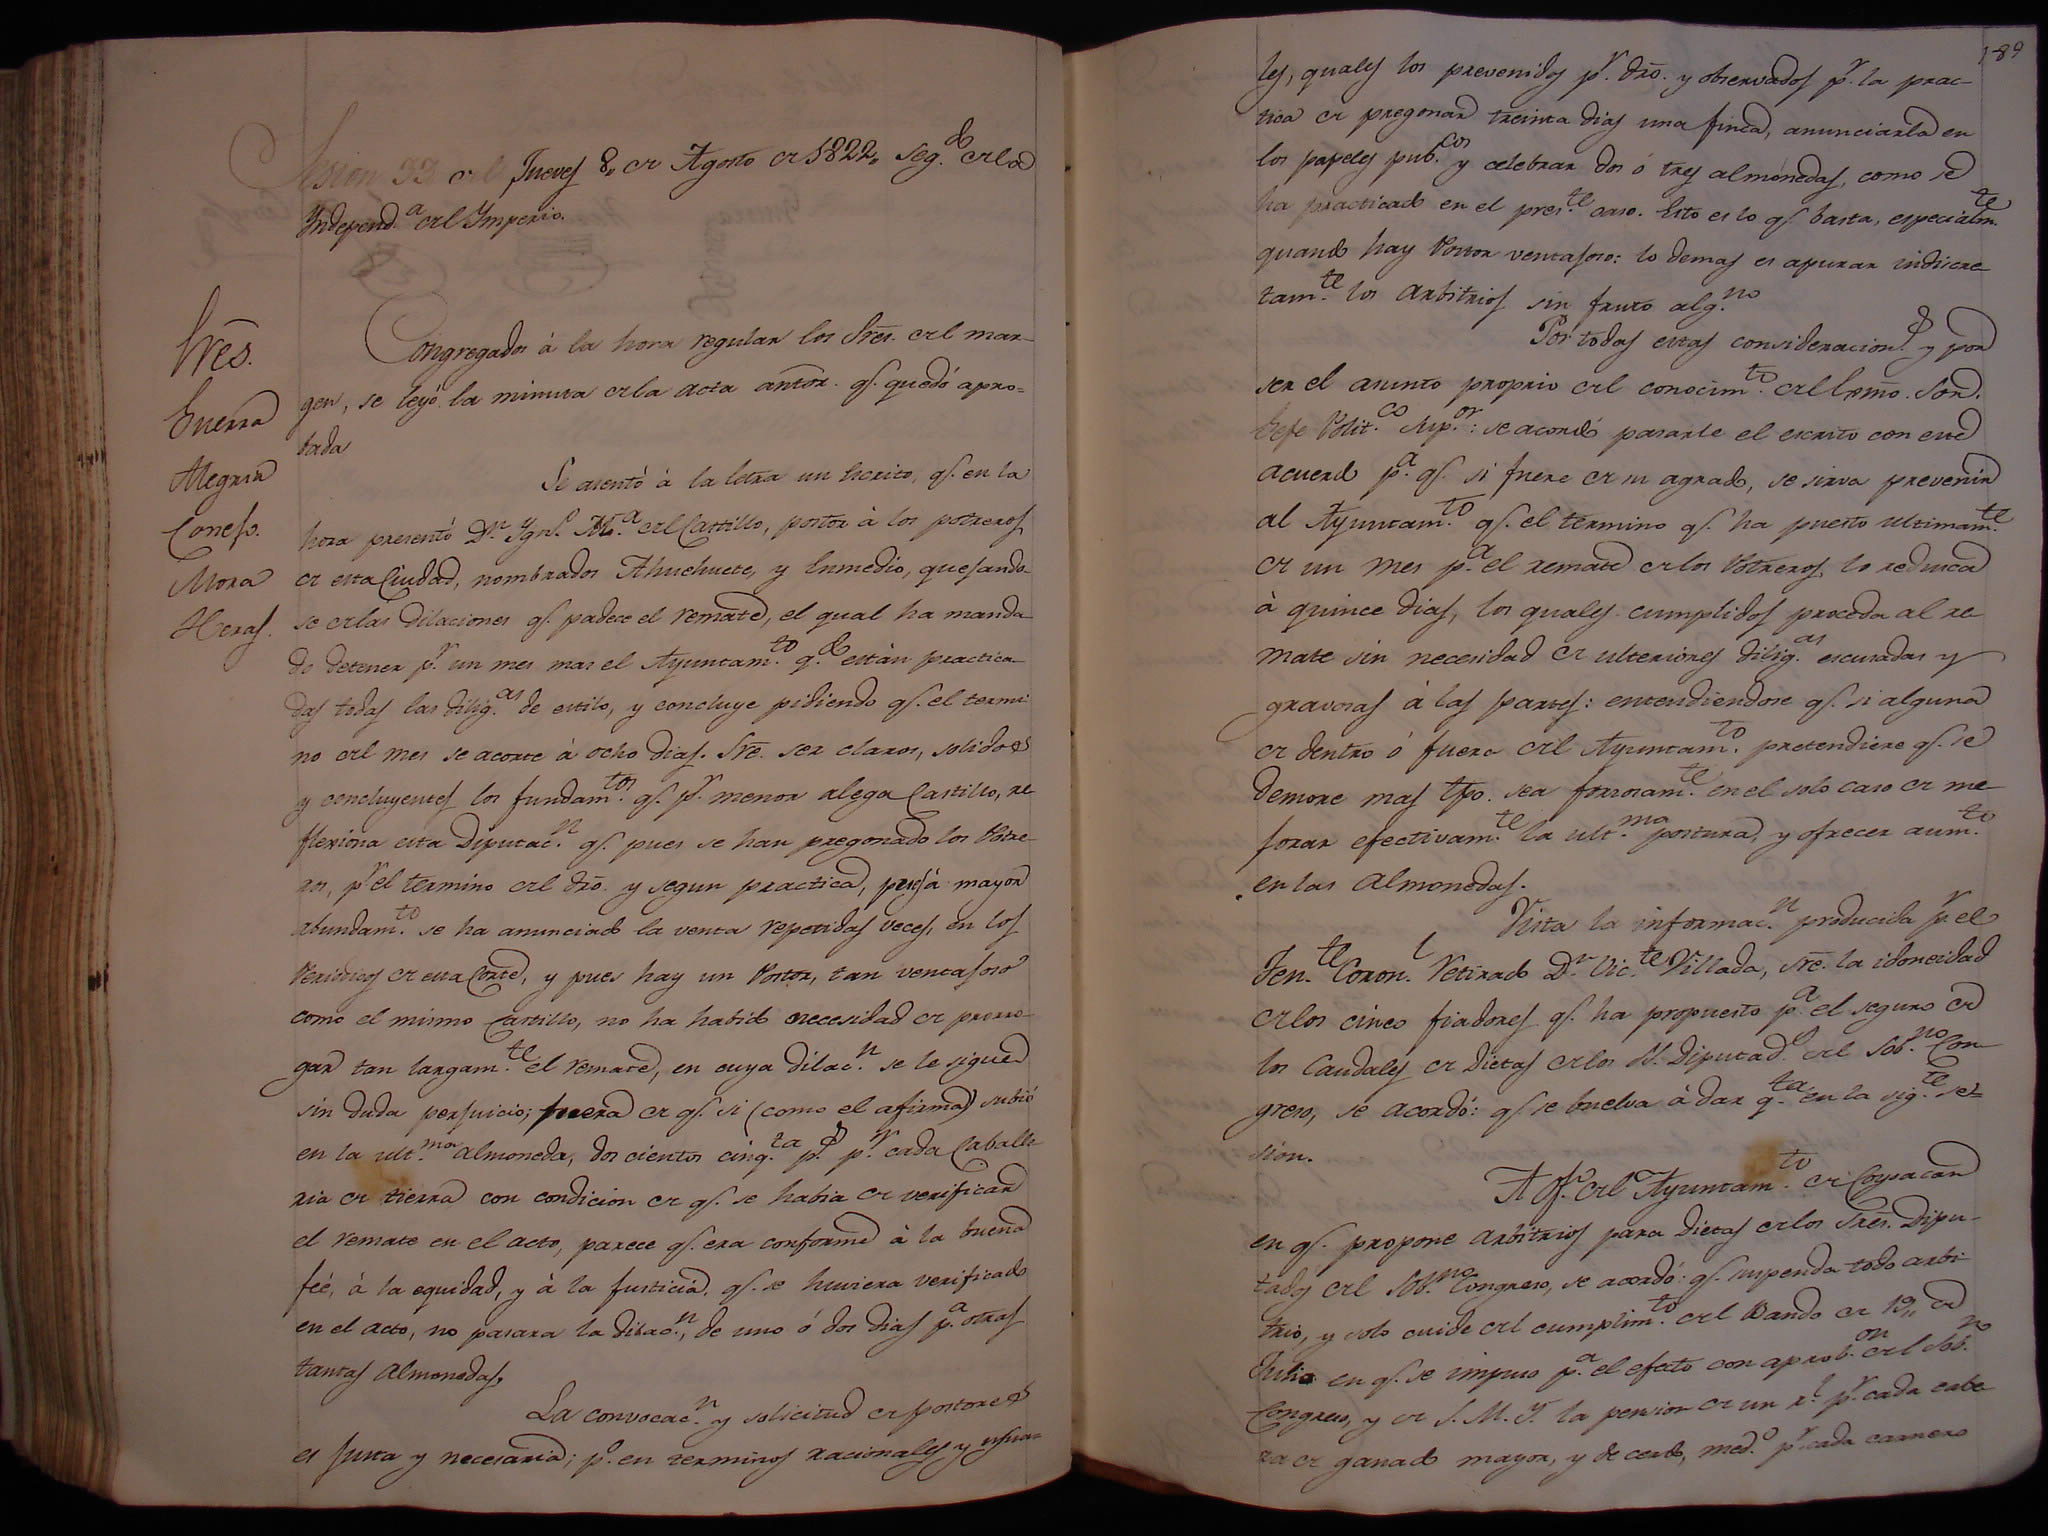 Sesion 33 del Jueves 8,, de Agosto de 1822,, seg.do de la
Yndepend.a del Ymperio.
Sres.
Guerra
Alegria
Conejo.
Mora
Heras.
Congregados à la hora regular los Sres. del mar-
gen, se leyó la minuta de la acta antor. q.e quedó apro=
bada
Se asentó à la letra un Escrito, q.e en la
hora presentó D.n Ygn.o M.a del Castillo, postor à los potreros
de esta Ciudad, nombrados Ahuehuete, y Enmedio, quejando-
se de las dilaciones q.e padece el remate, el qual ha manda-
do detener p.r un mes mas el Ayuntam.to q.do estàn practica-
das todas las dilig.as de estilo, y concluye pidiendo q.e el termi-
no del mes se acorte à ocho dias. Sre. ser claros, solidos
y concluyentes los fundam.tos q.e p.r menor alega Castillo, re-
flexiona esta Diputac.n q.e pues se han pregonado los Potre-
ros, p.r el termino del dro. y segun practica, pues à mayor
abundam.to se ha anunciado la venta repetidas veces, en los
Periodicos de esta Corte, y pues hay un Postor, tan ventajoso
como el mismo Castillo, no ha habido necesidad de prorro-
gar tan largam.te el remate, en cuya dilac.n se le sigue
sin duda perjuicio; fuera de q.e si (como el afirma) subió
en la ult.ma almoneda, dos cientos cinq.ta p.s p.r cada Caballe
ria de tierra con condicion de q.e se habia de verificar
el remate en el acto, parece q.e era conforme à la buena
feé, à la equidad, y à la justicia, q.e se huviera verificado
en el acto, no pasara la dilac.n, de uno ó dos dias p.a otras
tantas almonedas,
La convocac.n y solicitud de postores
es justa y necesaria; p.o en terminos racionales y usua-
189
les, quales los prevenidos p.r dro. y observados p.r la prac-
tica de pregonar treinta dias una finca, anunciarla en
los papeles pub.cos y celebrar dos ó tres almonedas, como se
ha practicado en el pres.te caso. Esto es lo q.e basta, especialm.te
quando hay Postor ventajoso: lo demas es apurar indiscre-
tam.te los arbitrios sin fruto alg.no
Por todas estas consideracion.s y por
ser el asunto proprio del conocim.to del Exmo. Sor.
Gefe Polit.co Sup.or: se acordó pasarle el escrito con este
acuerdo p.a q.e si fuere de su agrado, se sirva prevenir
al Ayuntam.to q.e el termino q.e ha puesto ultimam.te
de un mes p.a el remate de los Potreros, lo reduzca
à quince dias, los quales cumplidos proceda al re
mate sin necesidad de ulteriores dilig.as escusadas y
gravosas à las partes: entendiendose q.e si alguna
de dentro ó fuera del Ayuntam.to pretendiere q.e se
demore mas tpo. sea forzosam.te en el solo caso de me-
jorar efectivam.te la ult.ma postura, y ofrecer aum.to
en las almonedas.
Vista la informac.n producida p.r el
Ten.te Coron.l Retirado D.n Vic.te Villada, sre. la idoneidad
de los cinco fiadores q.e ha propuesto p.a el seguro de
los Caudales de Dietas de los S.S. Diputad.s del Sob.no Con-
greso, se acordó: q.e se buelva à dar q.ta en la sig.te se-
sion.
A Of.o del Ayuntam.to de Coyoacan
en q.e propone arbitrios para Dietas de los Sres. Dipu-
tados del Sob.no Congreso, se acordó: q.e suspenda todo arbi
trio, y solo cuide del cumplim.to del Bando de 19,, de
Julio en q.e se impuso p.a el efecto con aprob.on del Sob.no
Congreso, y de S. M. Y. la pension de un r.l p.r cada cabe
za de ganado mayor, y de cerdo, med.o p.r cada carnero